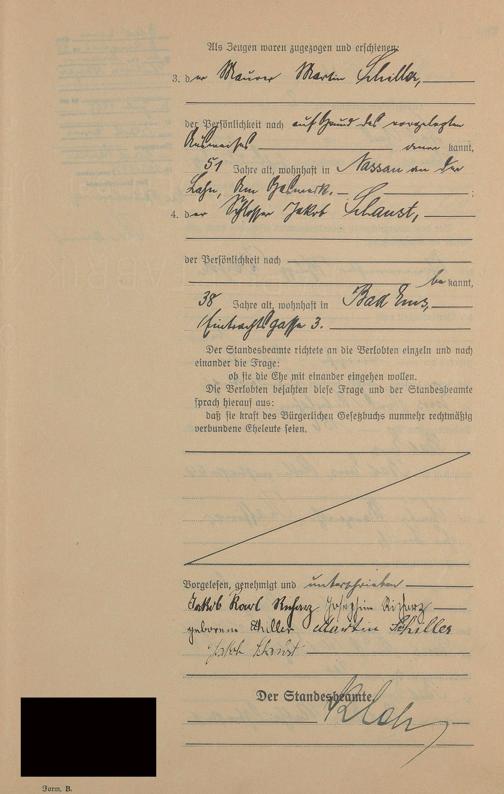 Als Zeugen waren zugezogen und erschienen:
3. der Maurer Martin Schiller,
der Persönlichkeit nach auf Grund des vorgelegten
Ausweises kannt,
51 Jahre alt, wohnhaft in Nassau an der
Lahn, Am Gaswerk. ;
4. der Schlosser Jakob Schaust,
der Persönlichkeit nach
be kannt,
38 Jahre alt, wohnhaft in Bad Ems,
Eintrachtgasse 3.
Der Standesbeamte richtete an die Verlobten einzeln und nach
einander die Frage:
ob sie die Ehe mit einander eingehen wollen.
Die Verlobten bejahten diese Frage und der Standesbeamte
sprach hierauf aus:
daß sie kraft des Bürgerlichen Gesetzbuchs nunmehr rechtmäßig
verbundene Eheleute seien.
Vorgelesen, genehmigt und unterschrieben
Jakob Karl Josephine
geborene Schiller Martin Schiller
Jakob Schaust
Der Standesbeamte.
Form. B.